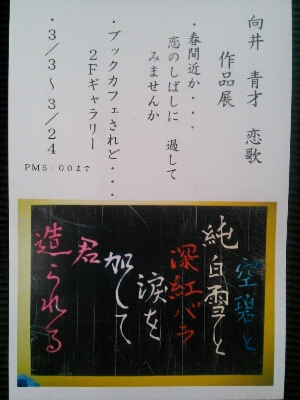 向井 青才 恋歌
作品展
・春間近か・・・
恋のしばしに 過して
みませんか
・ブックカフェされど・・・
2Fギャラリー
・3/3～3/24
PM5:00まで
空碧と
純白雪と
深紅バラ
涙を
加して
君
造られる